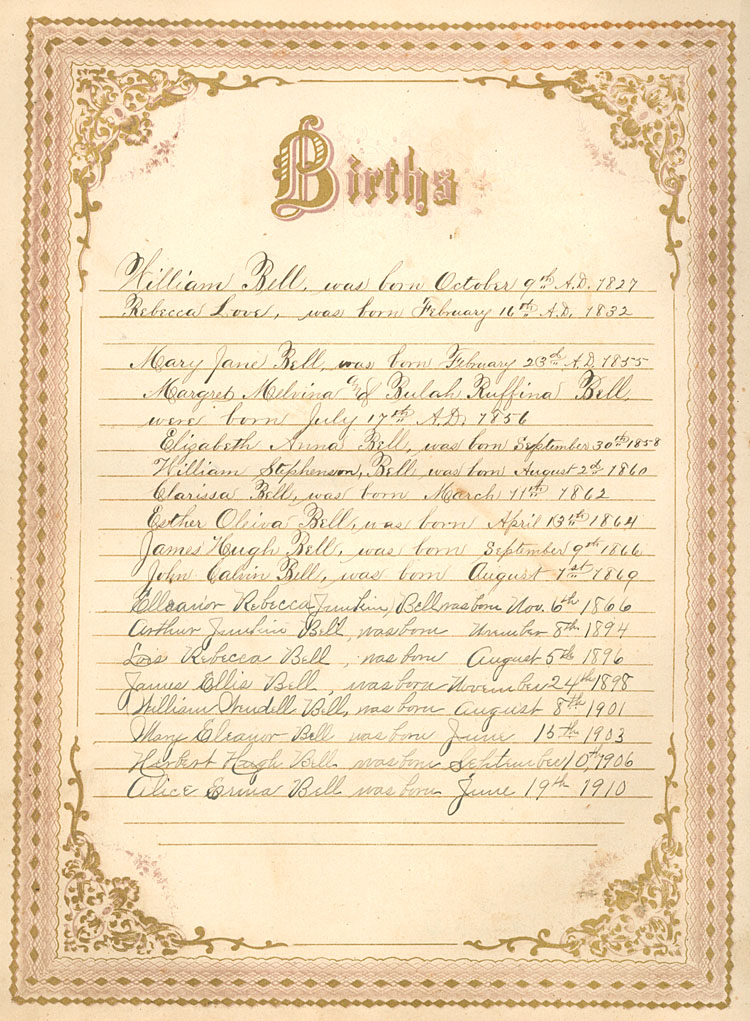 Births
William Bell, was born October 9th A.D. 1827
Rebecca Love, was born February 16th A.D. 1832
Mary Jane Bell, was born February 23d A.D. 1855
Margret Melvina & Bulah Ruffina Bell
were born July 17th A.D. 1856
Elizabeth Anna Bell, was born September 30th 1858
William Stephenson, Bell was born August 2d 1860
Clarissa Bell, was born March 11th 1862
Esther Oleiva Bell, was born April 13th 1864
James Hugh Bell, was born September 9th 1866
John Calvin Bell, was born August 1st 1869
Elleanor Rebecca Junkin, Bell was born Nov. 6th 1866
Arthur Junkin Bell, was born November 8th 1894
Lois Rebecca Bell, was born August 5th 1896
James Ellis Bell, was born November 24th 1898
William Wendell Bell, was born August 8th 1901
Mary Eleanor Bell was born June 15th 1903
Herbert Hugh Bell was born September 10th, 1906
Alice Erma Bell was born June 19th 1910